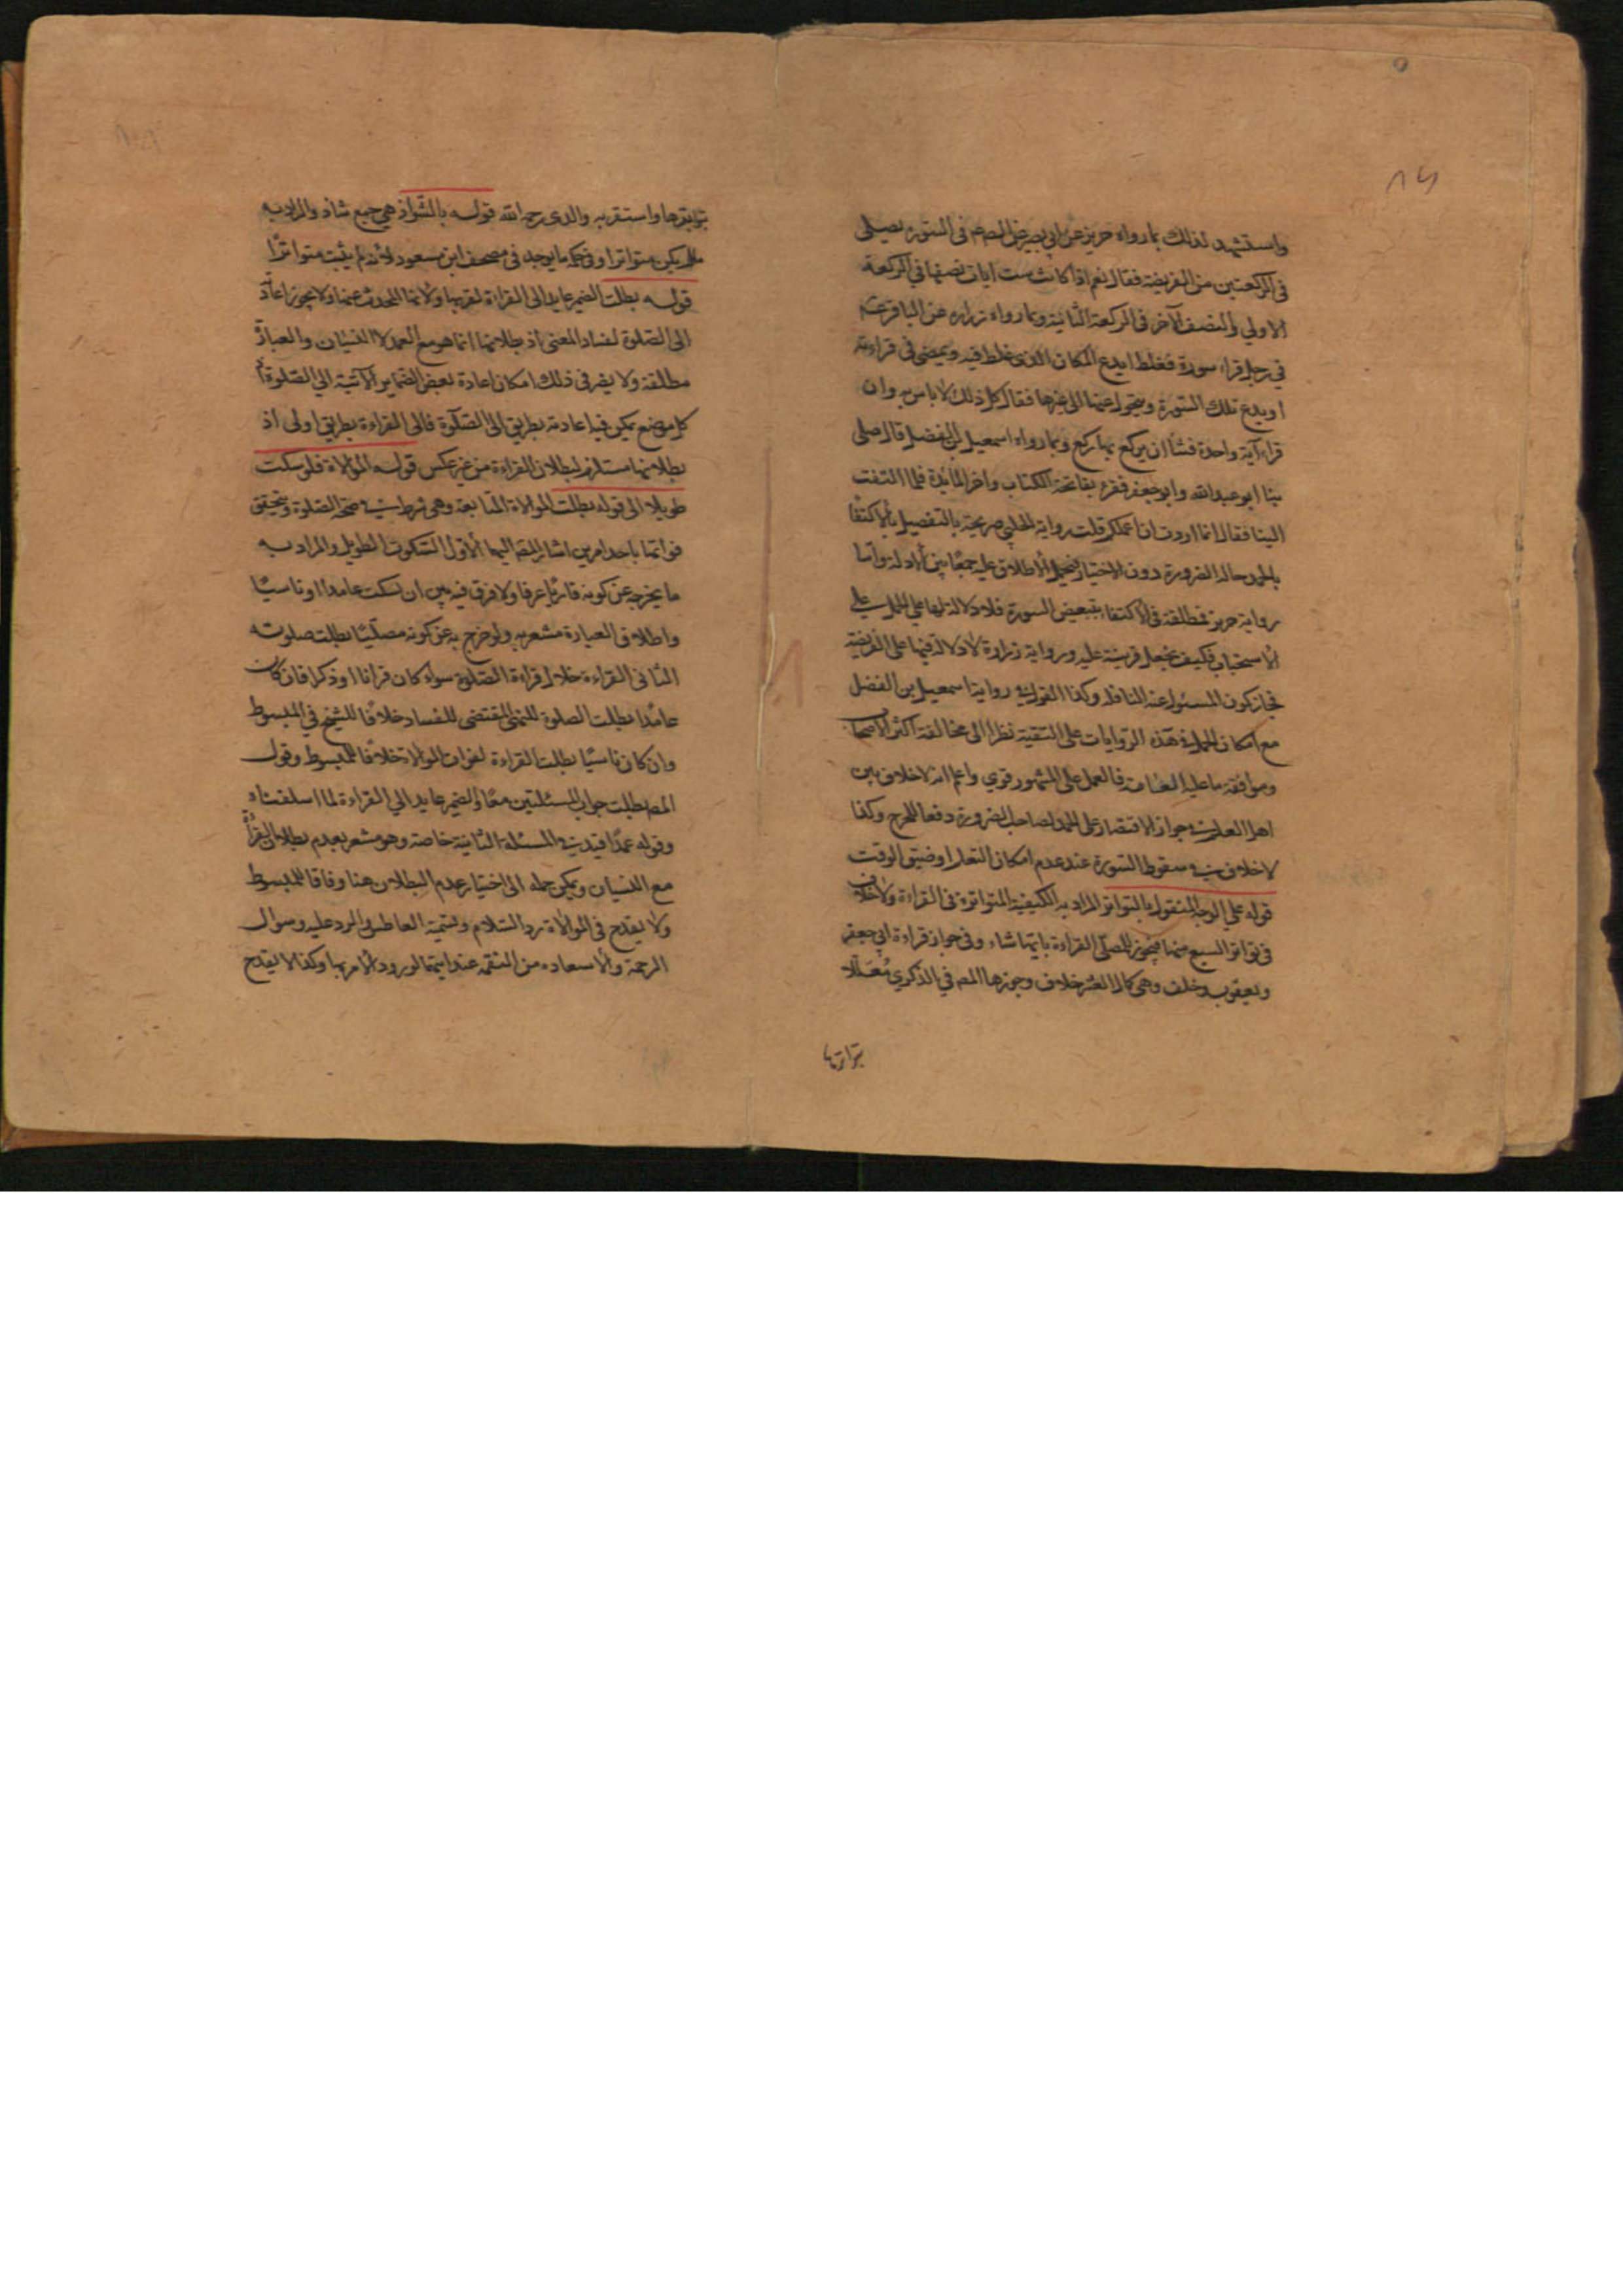 ٨٤
واستشهد لذلك بما رواه حريز عن ابي بصير عن الصم عم في السورة يصلى
في الركعتين من الفريضة فقال نعم اذا كانت ست ايات نصفها في الركعة
الاولي والنصف الآخر في الركعة الثانية وبما رواه زراره عن الباقر عم
في رجل قراء سورة فغلط ايدع المكان الذى غلط فيه ويمضى في قراءته
او يدع تلك السورة ويتحول عنها الى غيرها فقال كل ذلك لا باس به وان
قراء آية واحدة فشأ ان يركع بها ركع وبما رواه اسمعيل بن الفضل قال صلى
بنا ابو عبد الله وابو جعفر فقرء بفاتحة الكتاب واخر المائدة فلما التفت
الينا فقال انما اردت ان اعلمكم قلت رواية الحلبي صريحة بالتفصيل بالاكتفا
بالحمد حالة الضرورة دون الاختيار فيحمل الاطلاق عليه جمعًا بين الادلة واما
رواية حريز فمطلقة في الاكتفا ببعض السورة فلا دلالة لها علي الحمل علي
الاستحباب فكيف يجعل قرينة عليه ورواية زرارة لا دلالة فيها على الفريضة
فجاز كون المسئول عنه النافلة وكذا القول في رواية اسمعيل بن الفضل
مع امكان الحمل في هذه الروايات على التقية نظرا الى مخالفة اكثر الاصحاب
وموافقة ما عليه العامة فالعمل على المشهور قوي واعلم انه لا خلاف بين
اهل العلم في جواز الاقتصار على الحمد لصاحب الضرورة دفعا للحرج وكذا
لا خلاف في سقوط السورة عند عدم امكان التعلم او ضيق الوقت
قوله علي الوجه المنقول بالتواتر المراد به الكيفية المتواترة في القراءة ولا خلاف
في تواتر السبع منها فيجوز للمصلّى القراءة بايتها شاء وفي جواز قراءة ابي جعفر
ويعقوب وخلف وهى كمال العشر خلاف وجوزها المصم في الذكري مُعَلّلا
بتواترها
بتواترها واستقربه والدى رحمه الله قوله بالشواذ هي جمع شاذ والمراد به
ما لم يكن متواترا وفي حكمه ما يوجد في مصحف ابن مسعود لانه لم يثبت متواترًا
قوله بطلت الضمير عايد الى القراءة لقربها ولانها المحدث عنها ولا يجوز اعادته
الى الصلوة لفساد المعنى اذ بطلانها انما هو مع العمد لا النسيان والعبارة
مطلقة ولا يضر في ذلك امكان اعادة بعض الضماير الآتية الي الصلوة اذ
كل موضع يمكن فيه اعادته بطريق الى الصلوة فالى القراءة بطريق اولى اذ
بطلانها مستلزم لبطلان القراءة من غير عكس قوله الموالاة فلو سكت
طويلا الى قوله بطلت الموالاة المتابعة وهى شرط في صحة الصلوة ويتحقق
فواتها باحد امرين اشار المصم اليهما الاول السكوت الطويل والمراد به
ما يخرجه عن كونه قارئا عرفا ولا فرق فيه بين ان سكت عامدا او ناسيًا
واطلاق العبارة مشعر به ولو خرج به عن كونه مصليًا بطلت صلوته
الثانى القراءة خلال قراءة الصلوة سواء كان قرانا او ذكرا فان كان
عامدًا بطلت الصلوة للنهى المقتضى للفساد خلافًا للشيخ في المبسوط
وان كان ناسيًا بطلت القراءة لفوات الموالاة خلافًا للمبسوط وقول
المصم بطلت جواب المسئلتين معًا والضمير عايد الي القراءة لما اسلفناه
وقوله عمدًا قيد في المسئلة الثانية خاصة وهو مشعر بعدم بطلان القراءة
مع النسيان ويمكن حمله الى اختيار عدم البطلان هنا وفاقا للمبسوط
ولا يقدح في الموالاة رد السلام وتسمية العاطس والرد عليه وسوال
الرحمة والاستعاذة من النقمة عند ايتها لورود الامر بها وكذا لا يقدح